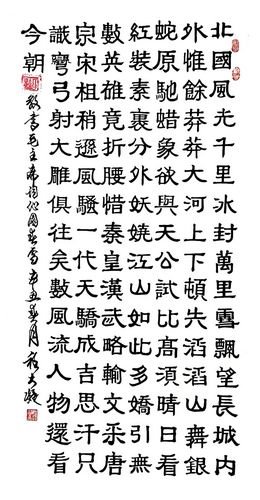 北國風光千里冰封萬里雪飄望長城內
外惟餘莽莽大河上下頓失滔滔山舞銀
蛇原馳蠟象欲與天公試比高須晴日看
紅裝素裹分外妖嬈江山如此多嬌引無
數英雄竟折腰惜秦皇漢武略輸文采唐
宗宋祖稍遜風騷一代天驕成吉思汗只
識彎弓射大雕俱往矣數風流人物還看
今朝
敬書毛主席詞沁園春雪辛丑